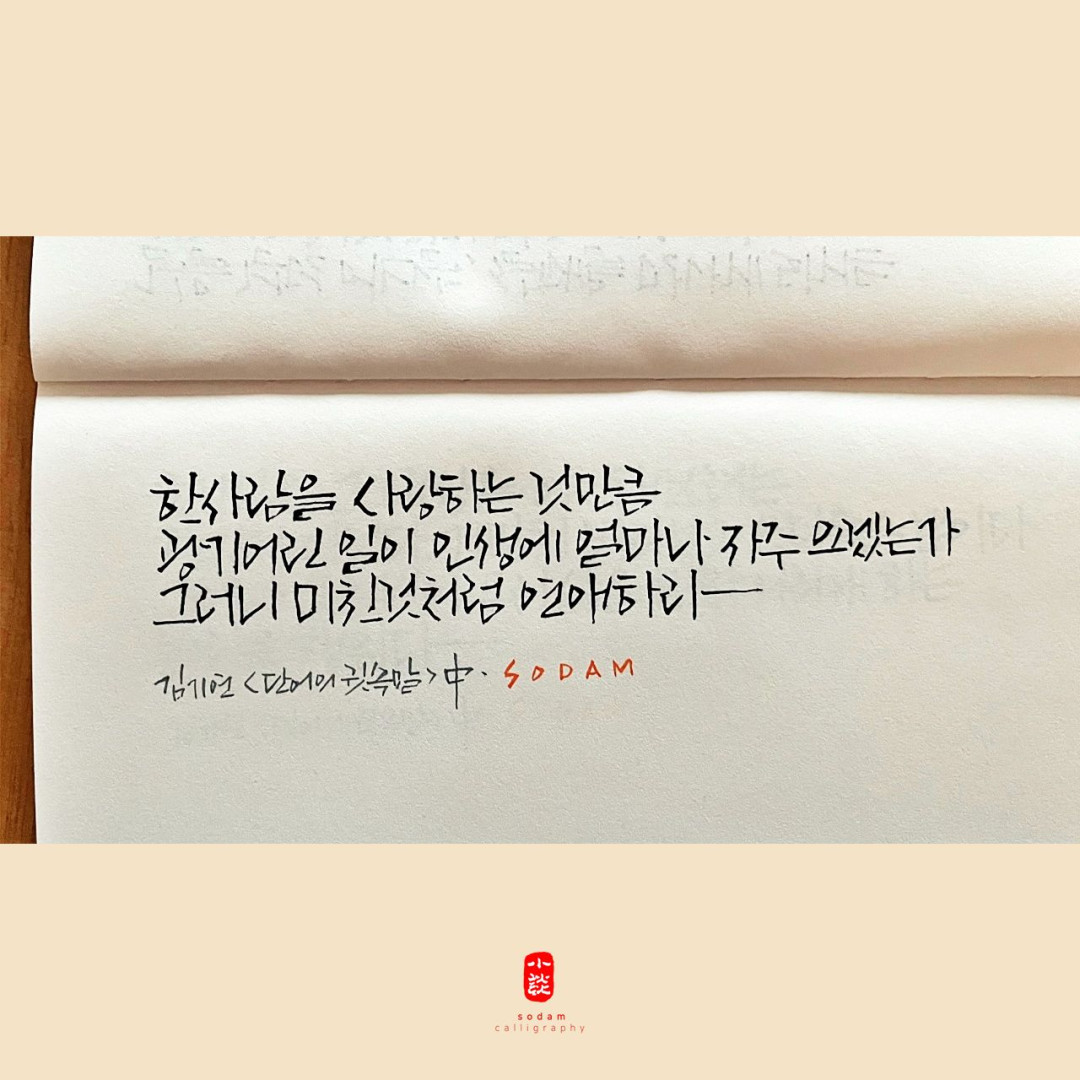 한사람을 사랑하는 것만큼
광기어린 일이 인생에 얼마나 자주 오겠는가
그러니 미친것처럼 연애하라—
김기연 <단어의 귓속말> 中. SODAM
小談
sodam
calligraphy